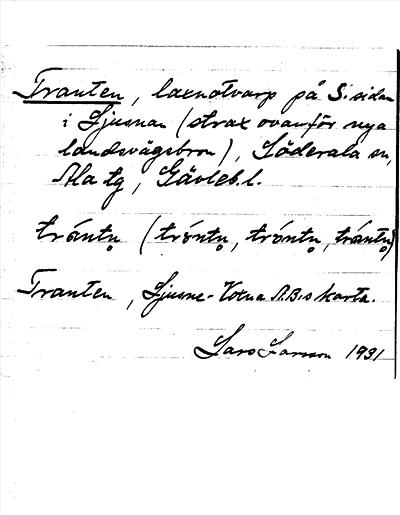 Tranten, laxnotvarp på S. sidan
i Ljusnan (strax ovanför nya
landsvägsbron), Söderala sn,
Ala tg, Gävleb. l.
trántn̥ (trǿntn̥, trǿntn̥, trántn̥)
Tranten, Ljusne-Voxna A.B:s karta.
Lars Larsson 1931